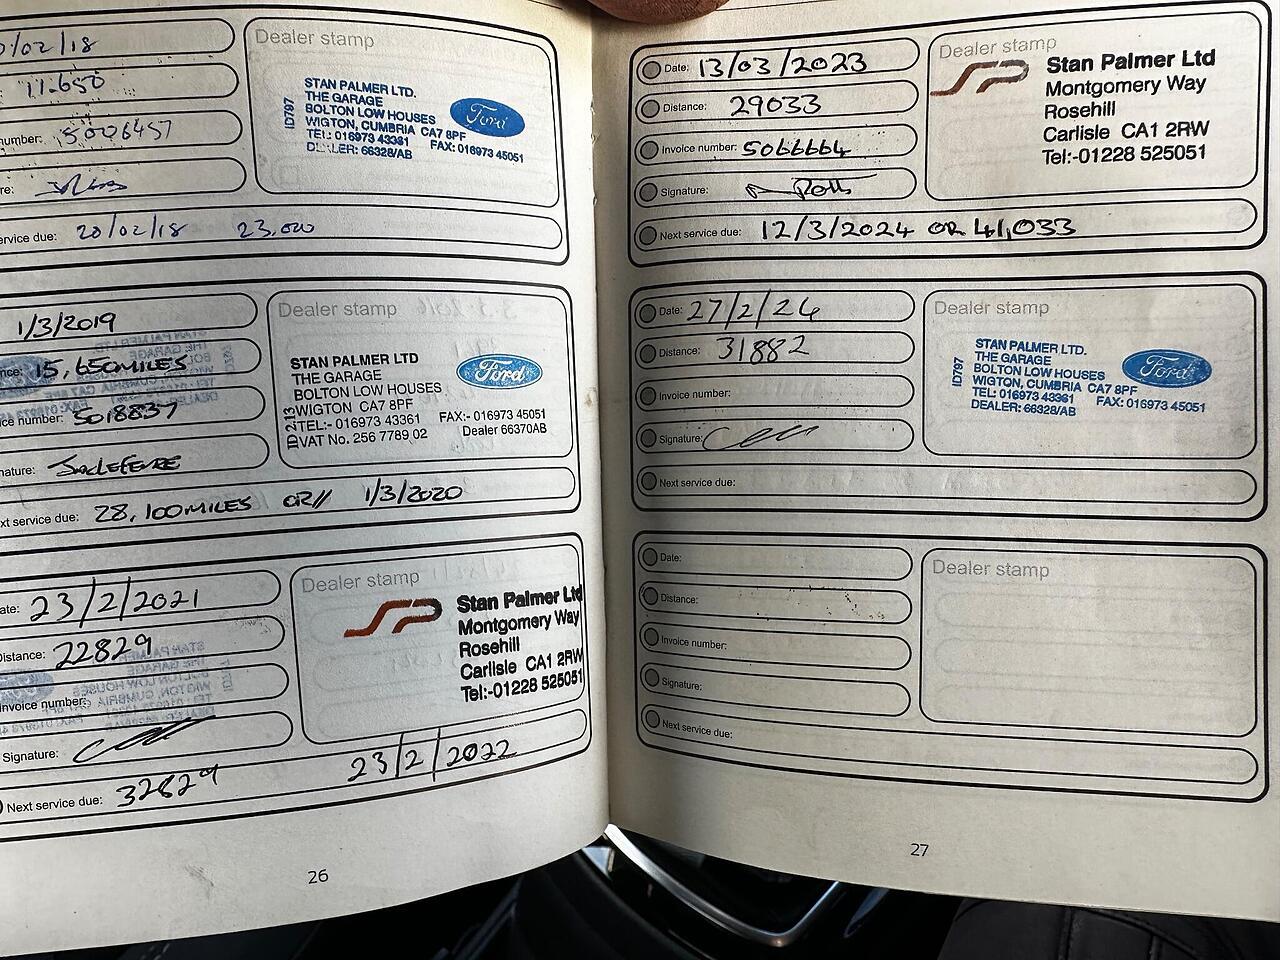 /02/18
Dealer stamp
11.650
STAN PALMER LTD.
THE GARAGE
BOLTON LOW HOUSES
WIGTON, CUMBRIA CA7 8PF
TEL: 016973 43361 FAX: 016973 45051
DEALER: 66328/AB
ID797
Ford
number: 5006457
re:
ervice due: 20/02/18 23,020
1/3/2019
Dealer stamp
nce: 15,650 MILES
STAN PALMER LTD
THE GARAGE
BOLTON LOW HOUSES
WIGTON CA7 8PF
TEL:- 016973 43361 FAX:- 016973 45051
VAT No. 256 7789 02 Dealer 66370AB
Ford
ice number: 5018837
nature:
xt service due: 28,100 MILES OR// 1/3/2020
ate: 23/2/2021
Dealer stamp
SP
Stan Palmer Ltd
Montgomery Way
Rosehill
Carlisle CA1 2RW
Tel:-01228 525051
Distance: 22829
Invoice number:
Signature:
Next service due: 32829 23/2/2022
26
Date: 13/03/2023
Dealer stamp
SP
Stan Palmer Ltd
Montgomery Way
Rosehill
Carlisle CA1 2RW
Tel:-01228 525051
Distance: 29033
Invoice number: 5066664
Signature:
Next service due: 12/3/2024 OR 41,033
Date: 27/2/24
Dealer stamp
Distance: 31882
STAN PALMER LTD.
THE GARAGE
BOLTON LOW HOUSES
WIGTON, CUMBRIA CA7 8PF
TEL: 016973 43361 FAX: 016973 45051
DEALER: 66328/AB
ID797
Ford
Invoice number:
Signature:
Next service due:
Date:
Dealer stamp
Distance:
Invoice number:
Signature:
Next service due:
27